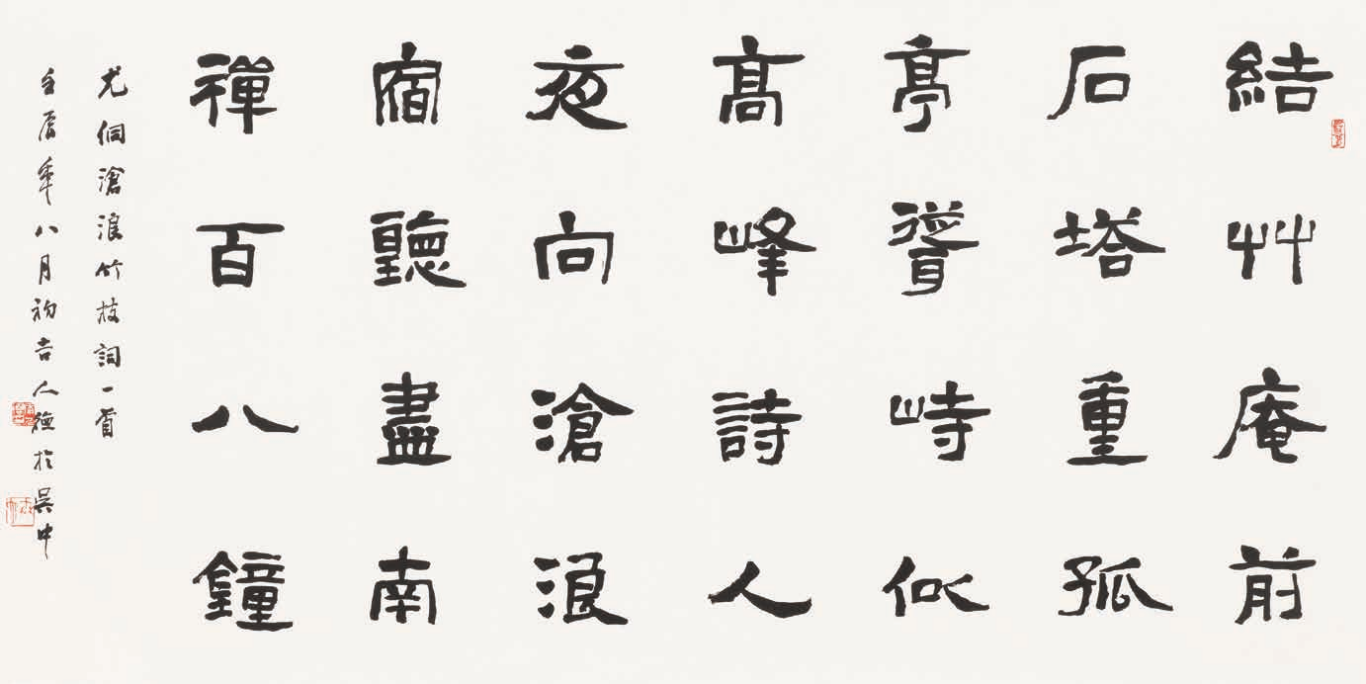 結艸庵前
石塔重孤
亭聳峙似
髙峰詩人
夜向滄浪
宿聽盡南
禪百八鐘
尤侗滄浪竹枝詞一首
壬辰年八月初吉人德於吳中